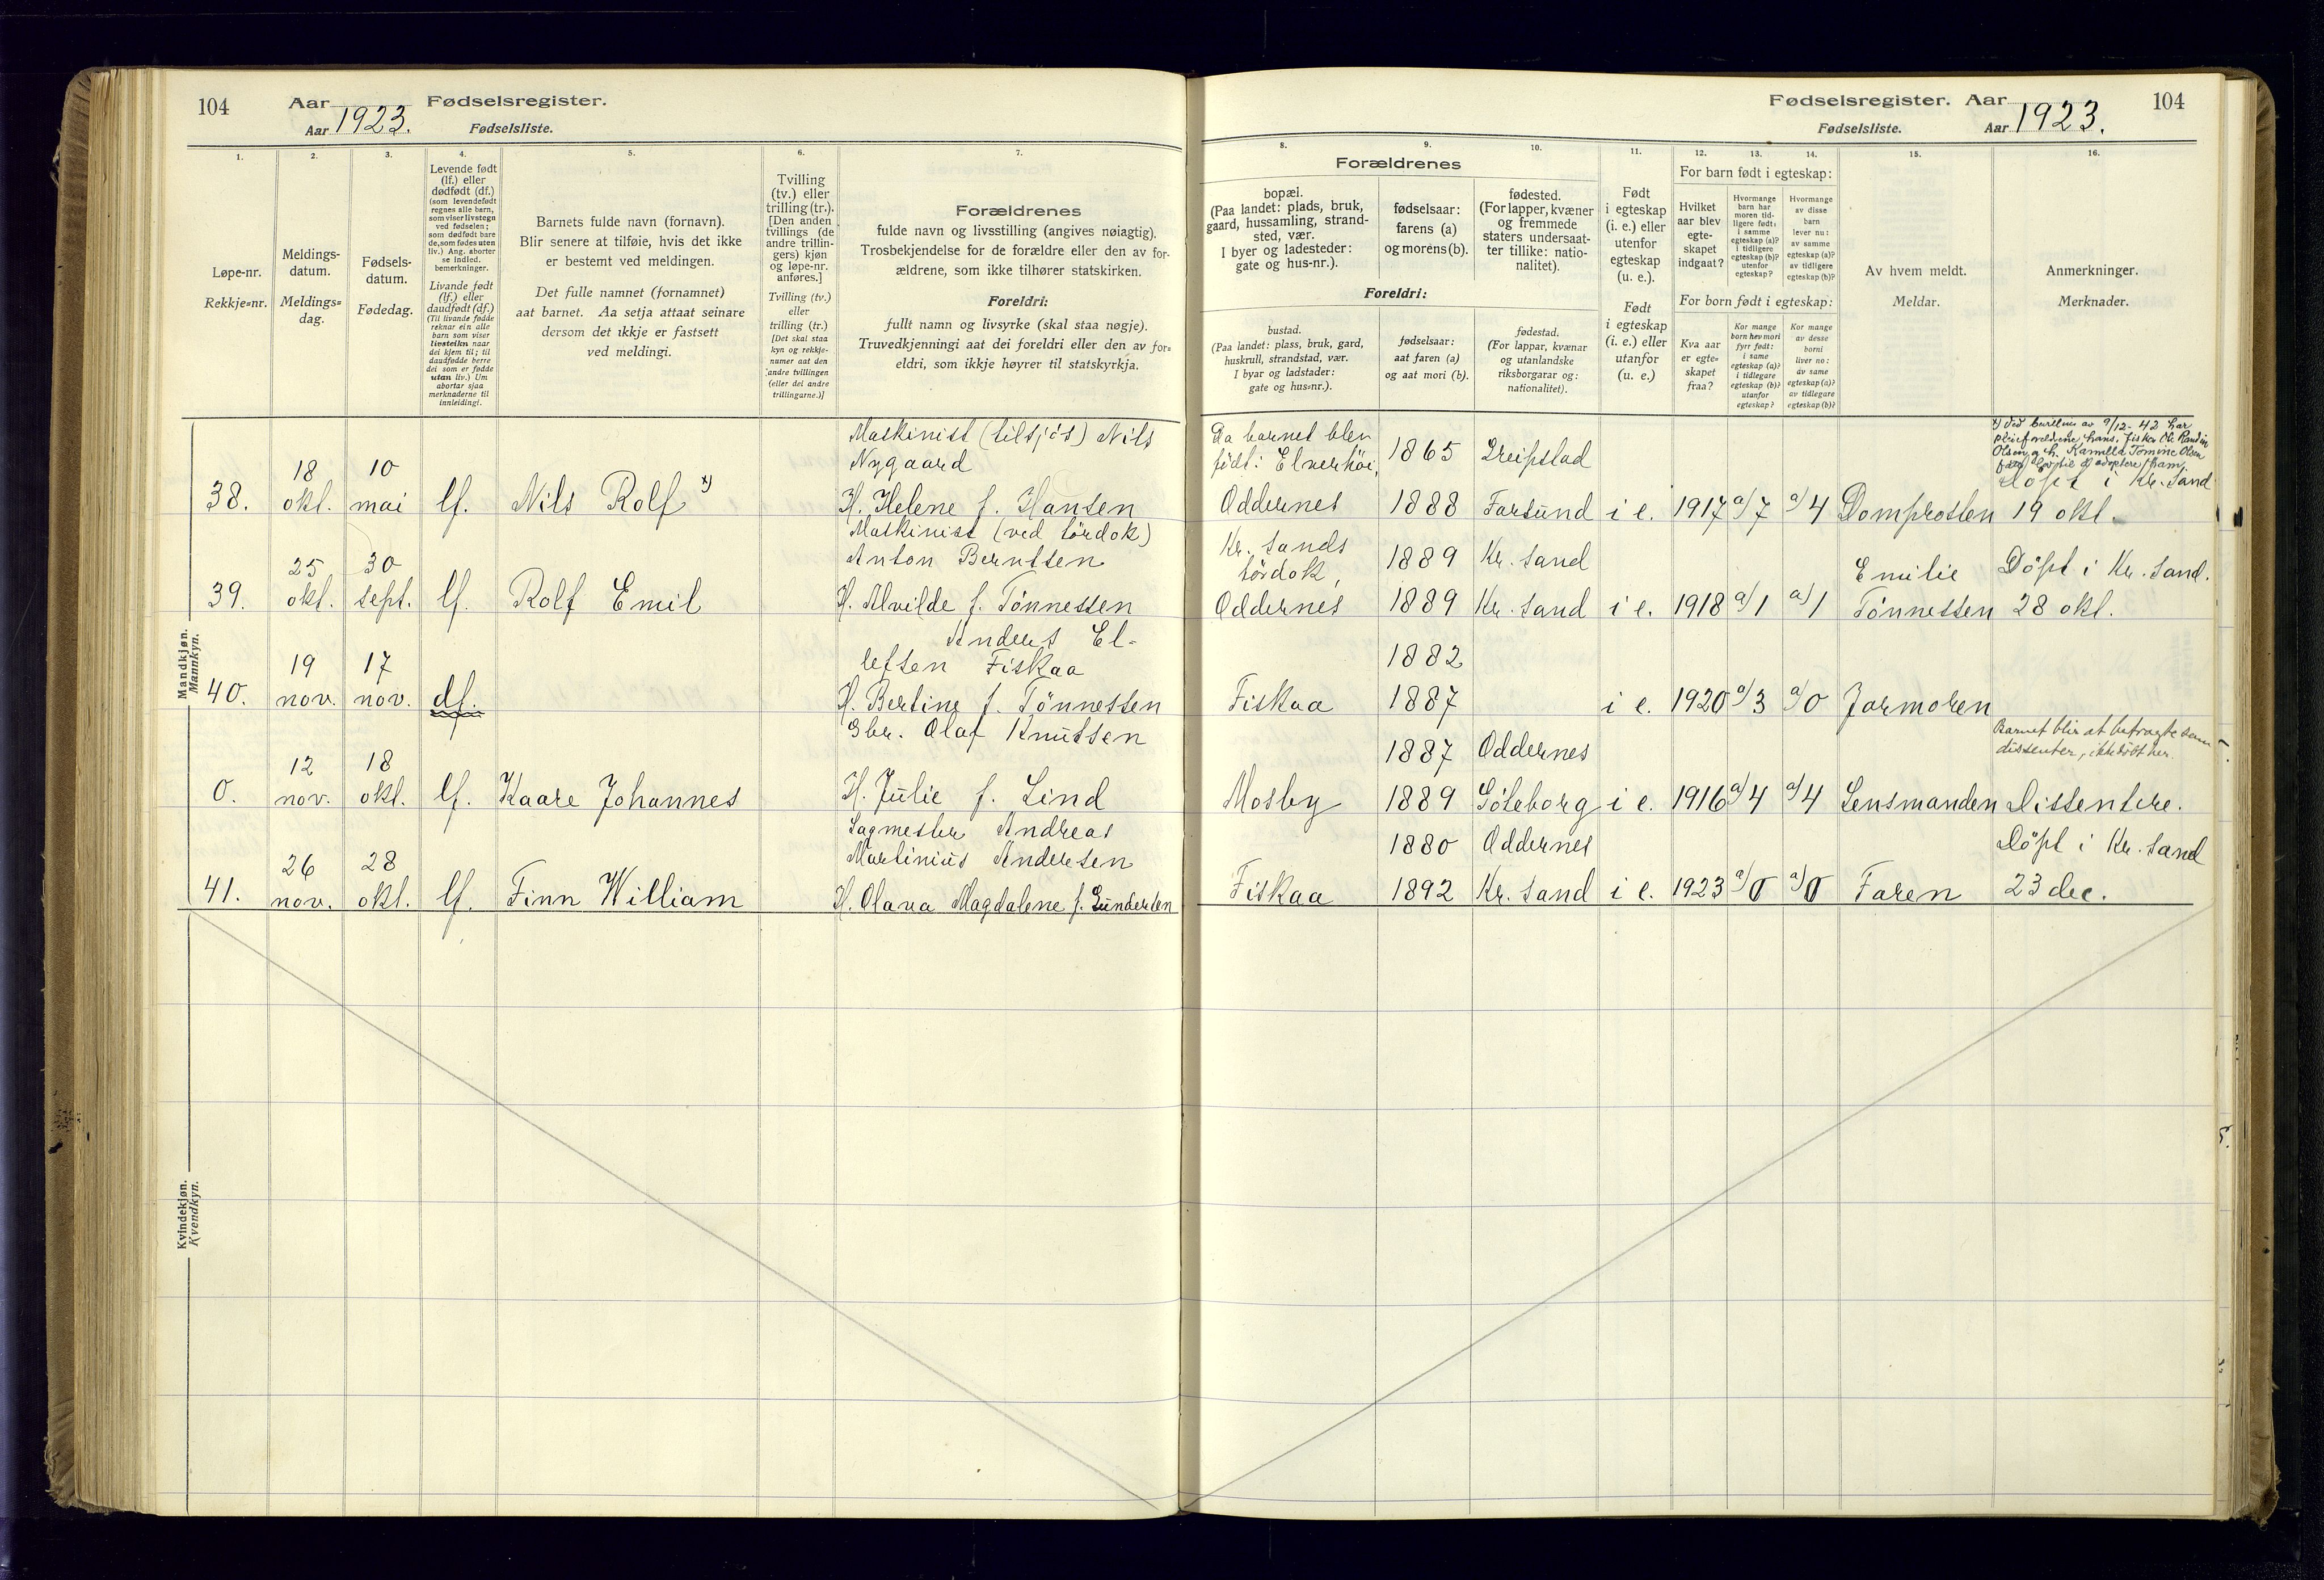 104 Aar 1923. Fødselsregister.
Aar Fødselsliste.
1. 2. 3. 4. 5. 6. 7.
Løpe-nr.
Rekkje=nr.
Meldings-
datum.
Meldings=
dag.
Fødsels-
datum.
Fødedag.
Levende født
(lf.) eller
dødfødt (df.)
(som levendefødt
regnes alle barn,
som viser livstegn
ved fødselen;
som dødfødt bare
de, som fødes uten
liv.) Ang. aborter
se indled.
bemerkninger.
Livande født
(lf.) eller
daudfødt (df.)
(Til livande fødde
reknar ein alle
barn som viser
livsteikn naar
dei kjem til; til
daudfødde berre
dei som er fødde
utan liv.) Um
abortar sjaa
merknaderne til
innleidingi.
Barnets fulde navn (fornavn).
Blir senere at tilføie, hvis det ikke
er bestemt ved meldingen.
Det fulle namnet (fornamnet)
aat barnet. Aa setja attaat seinare
dersom det ikkje er fastsett
ved meldingi.
Tvilling
(tv.) eller
trilling (tr.).
[Den anden
tvillings (de
andre trillin-
gers) kjøn
og løpe-nr.
anføres.]
Tvilling (tv.)
eller
trilling (tr.)
[Det skal staa
kyn og rekkje-
numer aat den
andre tvillingen
(eller dei andre
trillingarne.)]
Forældrenes
fulde navn og livsstilling (angives nøiagtig).
Trosbekjendelse for de forældre eller den av for-
ældrene, som ikke tilhører statskirken.
Foreldri:
fullt namn og livsyrke (skal staa nøgje).
Truvedkjenningi aat dei foreldri eller den av for=
eldri, som ikkje høyrer til statskyrkja.
Mandkjøn.
Mannkyn.
Kvindekjøn.
Kvendkyn.
Maskinist (tilsjøs) Nils
18 10 Nygaard
38. okt. mai lf. Nils Rolf x) H. Helene f. Hansen
Maskinist (ved tördok)
25 30 Anton Berntsen
39. okt. sept. lf. Rolf Emil H. Alvilde f. Tönnessen
Anders El-
19 17 lefsen Fiskaa
40. nov. nov. df. H. Bertine f. Tönnessen
Gbr. Olaf Knutsen
12 18
0. nov. okt. lf. Kaare Johannes H. Julie f. Lind
Sagmester Andreas
26 28 Martinius Andersen
41. nov. okt. lf. Finn William H. Olava Magdalene f. Gundersen
Fødselsregister. Aar 1923. 104
Fødselsliste. Aar
8. 9. 10. 11. 12. 13. 14. 15. 16.
Forældrenes
bopæl.
(Paa landet: plads, bruk,
gaard, hussamling, strand-
sted, vær.
I byer og ladesteder:
gate og hus-nr.).
fødselsaar:
farens (a)
og morens (b).
fødested.
(For lapper, kvæner
og fremmede
staters undersaat-
ter tillike: natio-
nalitet).
Foreldri:
bustad.
(Paa landet: plass, bruk, gard,
huskrull, strandstad, vær.
I byar og ladstader:
gate og hus=nr.).
fødselsaar:
aat faren (a)
og aat mori (b).
fødestad.
(For lappar, kvænar
og utanlandske
riksborgarar og:
nationalitet).
Født
i egteskap
(i. e.) eller
utenfor
egteskap
(u. e.).
Født
i egteskap
(i. e.) eller
utanfor
(u. e.)
For barn født i egteskap:
Hvilket
aar blev
egte-
skapet
indgaat?
Hvormange
barn har
moren tid-
ligere født:
i samme
egteskap (a)?
i tidligere
egteskap (b)?
utenfor
egteskap?
Hvormange
av disse
barn
lever nu:
av samme
egteskap (a)?
av tidligere
egteskap (b)?
For born født i egteskap:
Kva aar
er egte=
skapet
fraa?
Kor mange
born hev mori
fyrr født:
i same
egteskap (a)?
i tidlegare
egteskap (b)?
utanfor
egteskap?
Kor mange
av desse
borni
liver no:
av same
egteskap (a)?
av tidlegare
egteskap (b)?
Av hvem meldt.
Meldar.
Anmerkninger.
Merknader.
x) Ved bevilling av 9/12-42 har
pleieforeldrene hans, fisker Ole Randin
Olsen og h. Kamilla Tomine Olsen
adoptere ham.
Da barnet blev
født: Elverhöi, 1865 Greipstad Döpt i Kr. sand
Oddernes 1888 Farsund i e. 1917 a) 7 a) 4 Domprosten 19 okt.
Kr. sands
tördok, 1889 Kr. sand Emilie Döpt i Kr. sand.
Oddernes 1889 Kr. sand i e. 1918 a) 1 a) 1 Tönnessen 28 okt.
1882
Fiskaa 1887 i e. 1920 a) 3 a) 0 Jormoren
Barnet blir at betragte som
dissenter, ikke döbt her.
1887 Oddernes
Mosby 1889 Göteborg i e. 1916 a) 4 a) 4 Lensmanden Dissentere.
1880 Oddernes Döpt i Kr. sand
Fiskaa 1892 Kr. sand i e. 1923 a) 0 a) 0 Faren 23 dec.